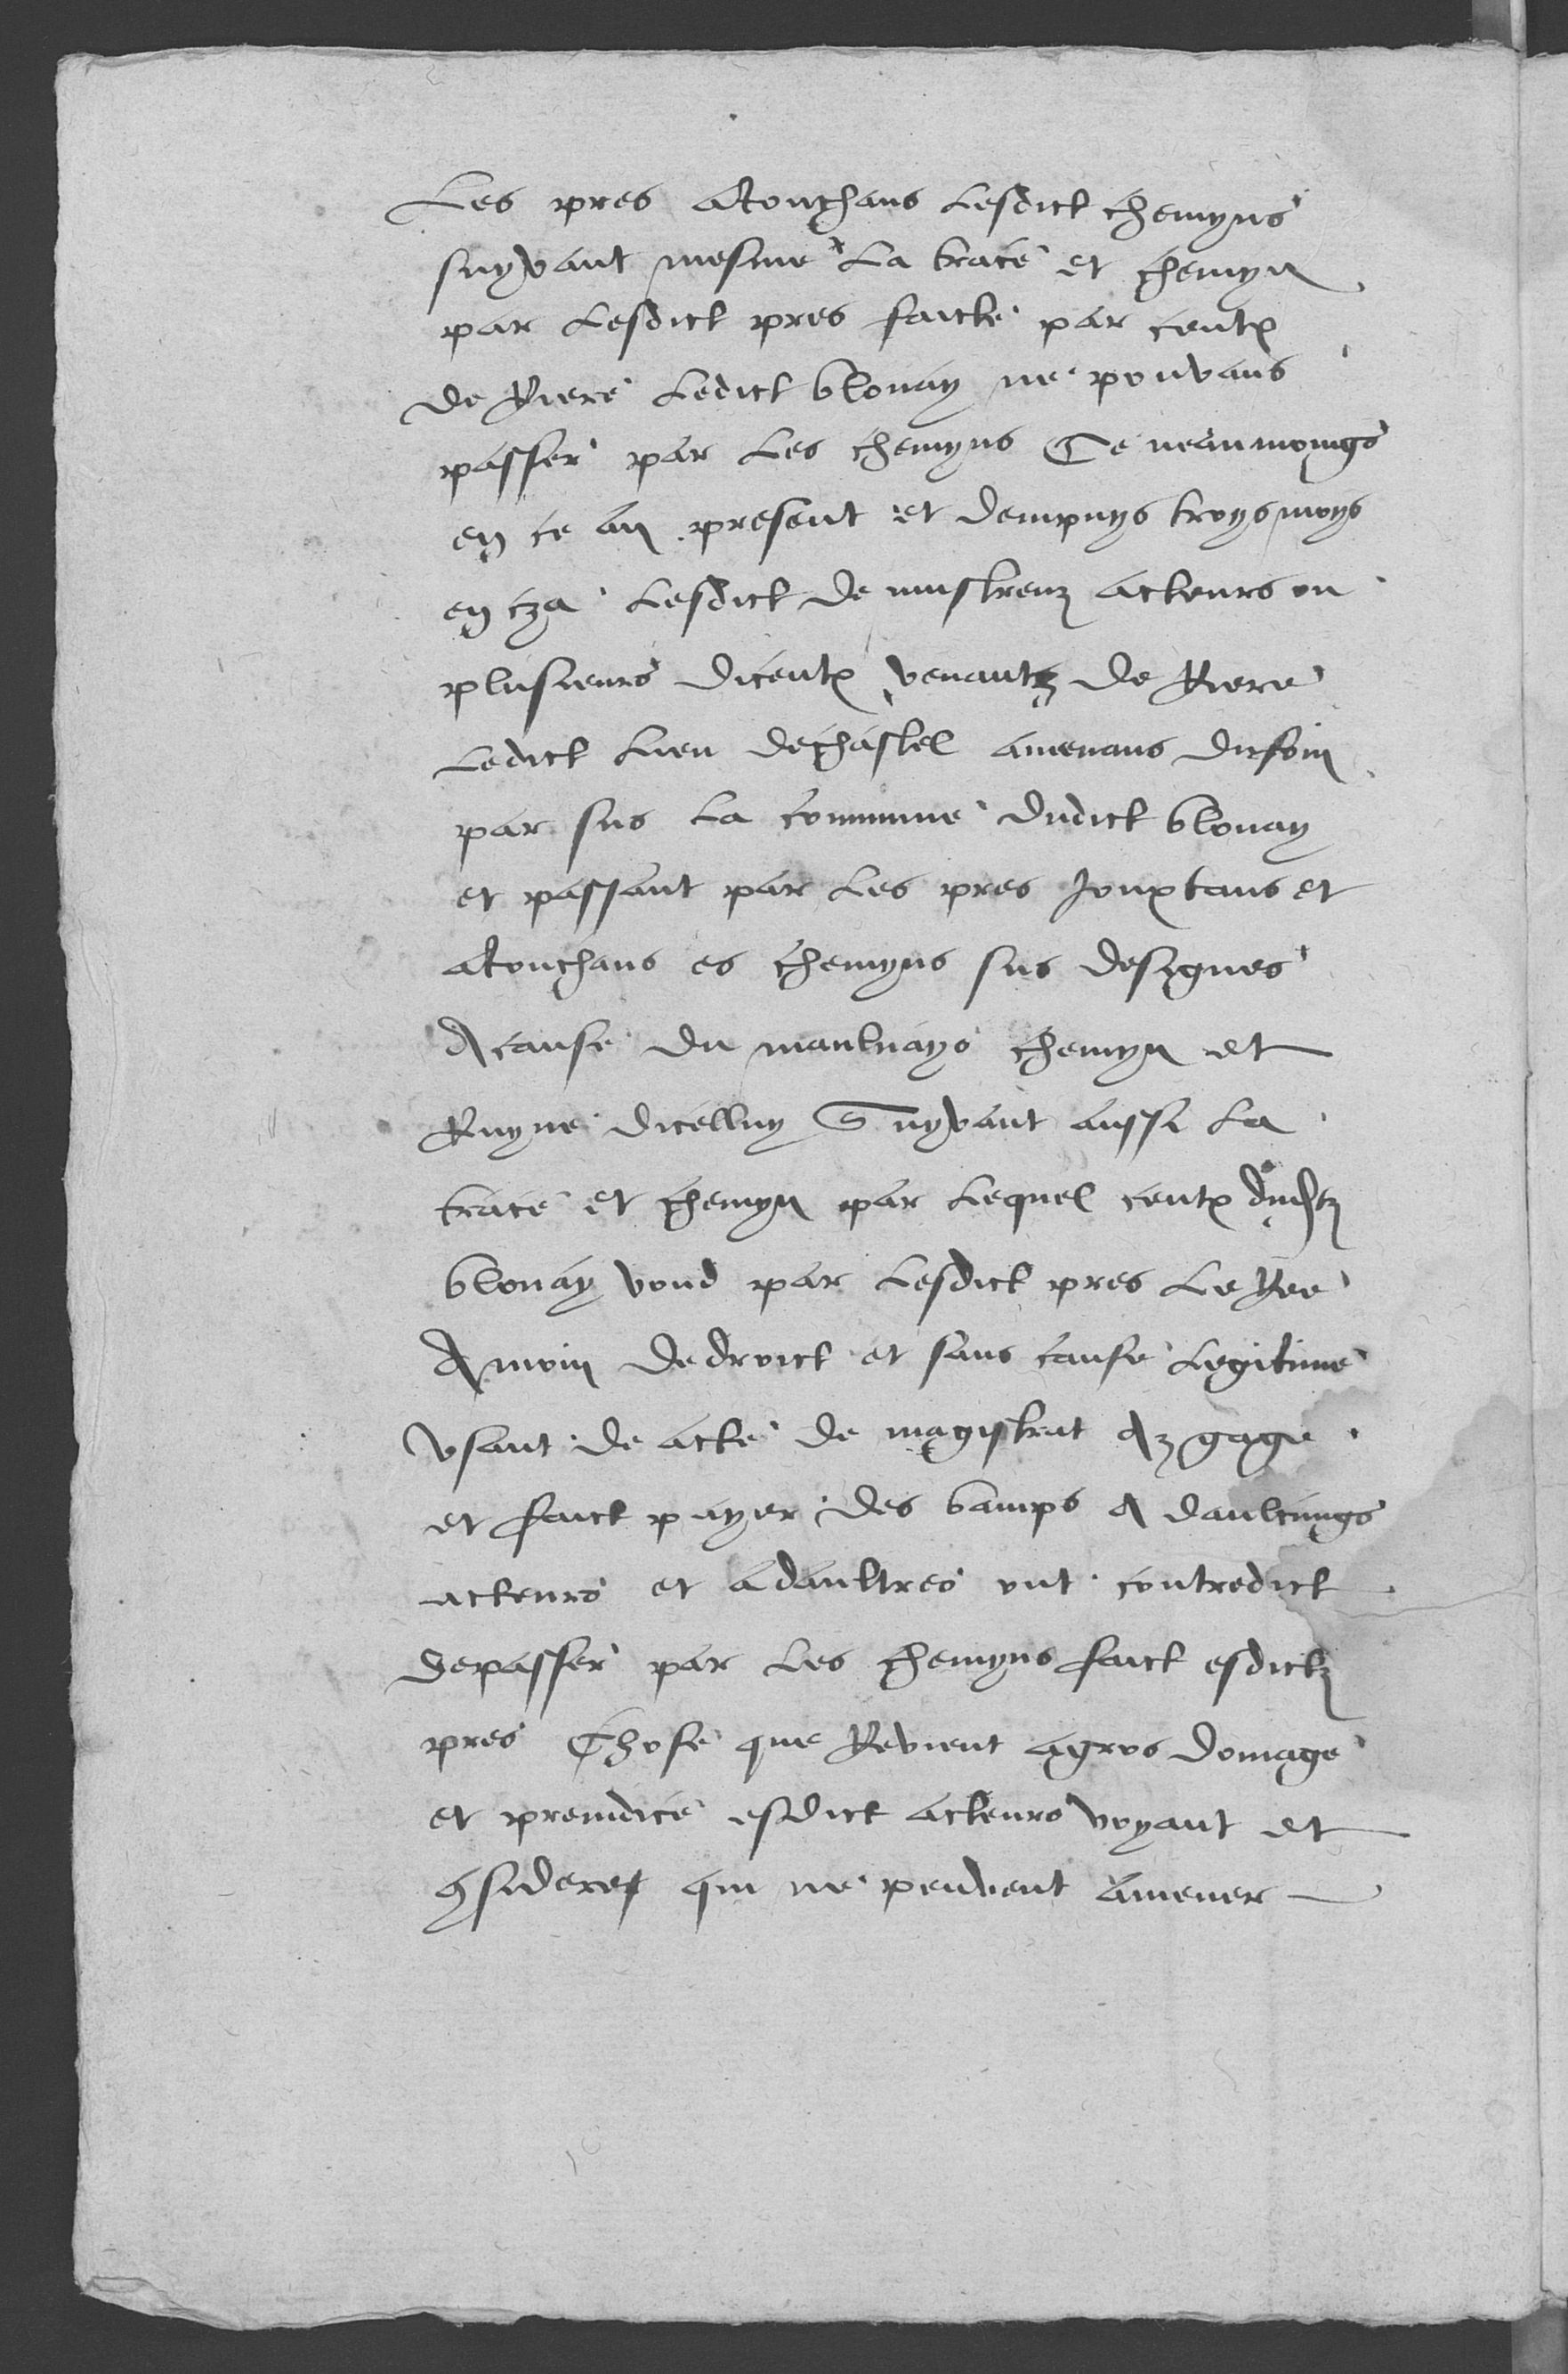 Les pres atouchans lesdict chemyns
suyvant mesme la trace et chemyn
par lesdict pres faicte par ceulx
de riere ledict blonay ne pouvans
passer par les chemyns Ce neanmoings
en ce an present et dempuys troys moys
en cza lesdict de mustreuz acteurs ou
plusieurs diceulx venantz de riere
ledict lieu de chastel amenans du foin
par sus la commune dudict blonay
et passant par les pres jouxtans et
atouchans es chemyns sus designes
A cause du maulvays chemyn et
Ruyne dicelluy Suyvant aussi la
trace et chemyn par lequel ceulx dudictz
blonay vond par lesdict pres le Ree
A moin de droict et sans cause legitime
Usant de acte de magistrat Az gage
et faict payer des bamps A daulcungs
acteurs et a daultres ont contredict
de passer par les chemyns faict esdictz
pres Chose que Revient a gros domage
et preiudice esdict acteurs voyant et
considere qui ne peuvent amener